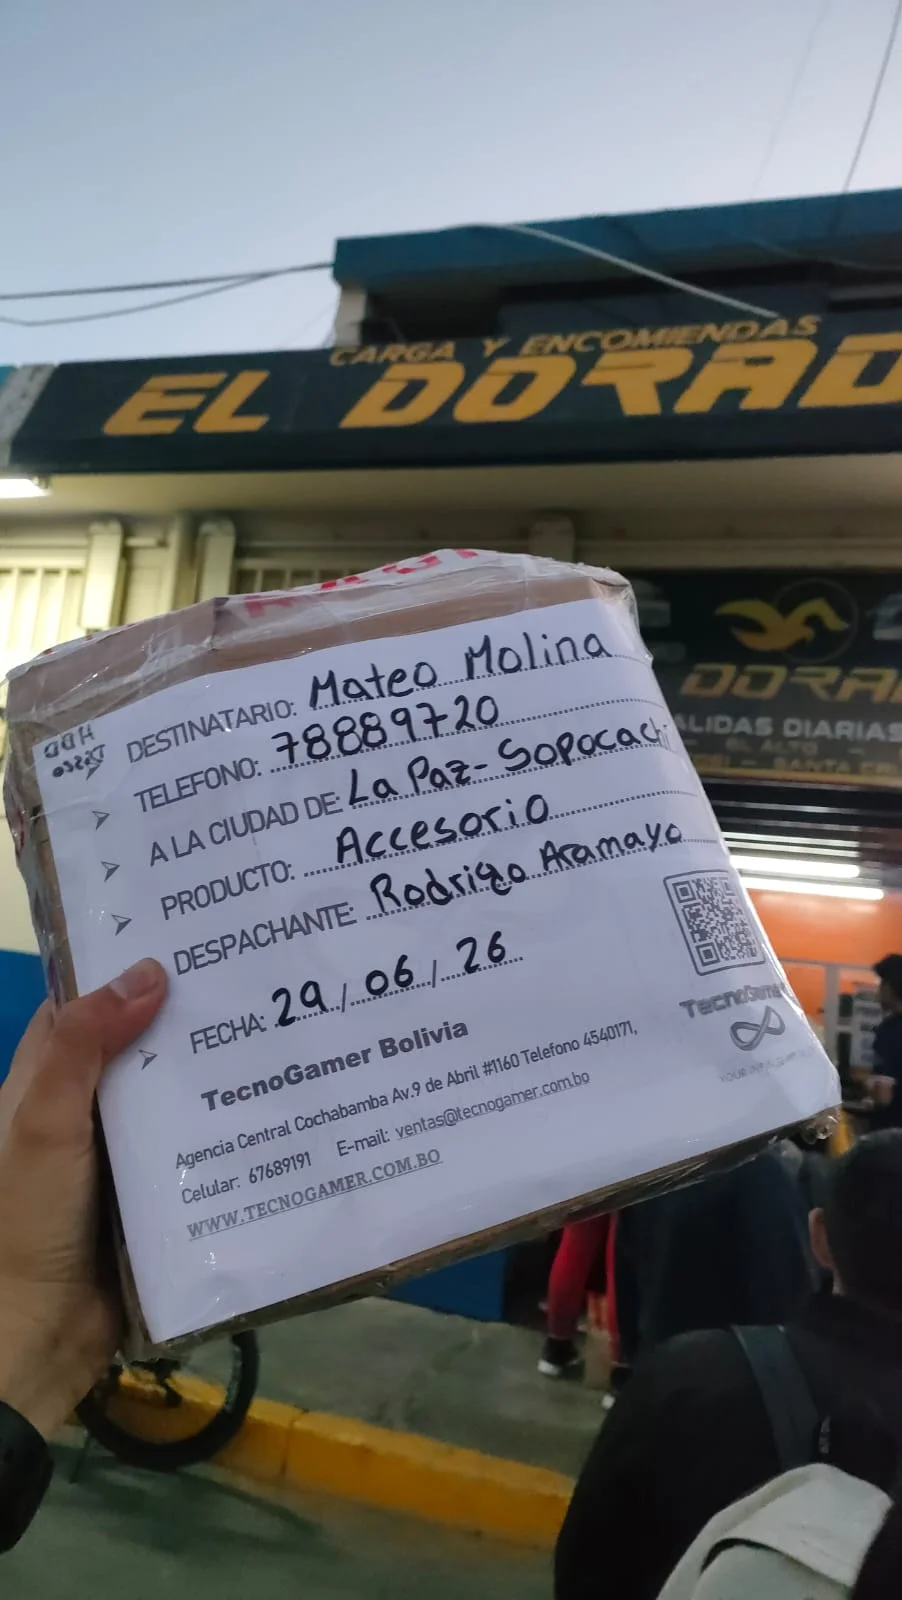 CARGA Y ENCOMIENDAS
EL DORAD
DORA
ALIDAS DIARIAS
EL ALTO
SANTA CRU
DESTINATARIO: Mateo Molina
TELEFONO: 78889720
A LA CIUDAD DE: La Paz-Sopocachi
PRODUCTO: Accesorio
DESPACHANTE: Rodrigo Aramayo
FECHA: 29/06/26
TecnoGamer Bolivia
Agencia Central Cochabamba Av.9 de Abril #1160 Telefono 4540171,
Celular: 67689191 E-mail: ventas@tecnogamer.com.bo
WWW.TECNOGAMER.COM.BO
TecnoGamer